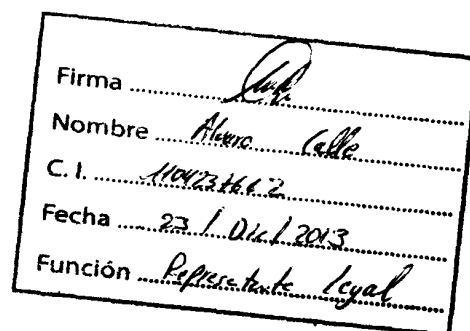 Firma
Nombre Alvaro Calle
C. I. 1104237662
Fecha 23 / Dic / 2013
Función Representante legal